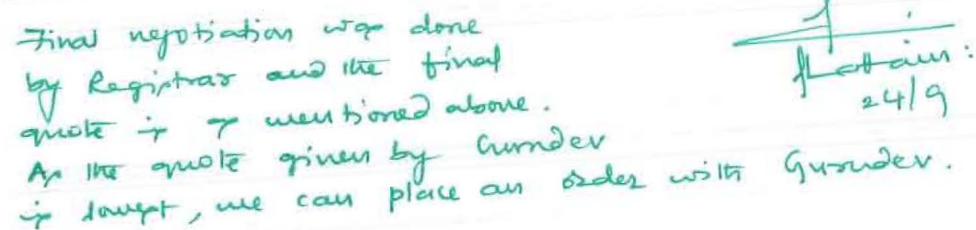 Final negotiation was done
by Registrar and the final
quote is as mentioned above.
As the quote given by Gurudev
is lowest, we can place an order with Gurudev.
24/9